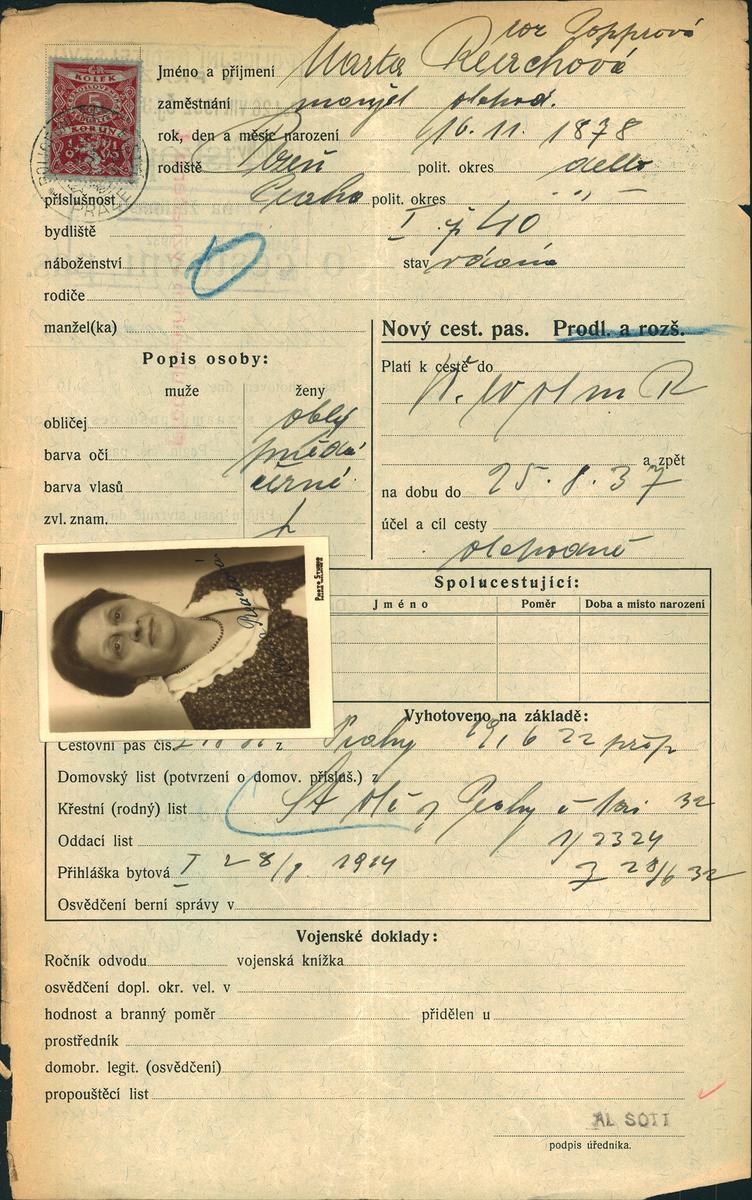 KOLEK
5
KORUN
roz. Popprová
Jméno a příjmení Marta
zaměstnání manžel. obchod.
rok, den a měsíc narození 16. 11. 1878
rodiště polit. okres detto
příslušnost Praha polit. okres „ —
bydliště I 40
náboženství stav vdaná
rodiče
manžel(ka)
Nový cest. pas. Prodl. a rozš.
Popis osoby:
muže ženy
obličej oblý
barva očí hnědé
barva vlasů černé
zvl. znam.
Platí k cestě do
a zpět
na dobu do 25. 8. 37
účel a cíl cesty
obchodně
PHOTO STUDIO
Spolucestující:
Jméno Poměr Doba a místo narození
Vyhotoveno na základě:
Cestovní pas čís. z Prahy 19/6 22
Domovský list (potvrzení o domov. přísluš.) z
Křestní (rodný) list Prahy 32
Oddací list 2324
Přihláška bytová I 28/ 1914 28/6 32
Osvědčení berní správy v
Vojenské doklady:
Ročník odvodu vojenská knížka
osvědčení dopl. okr. vel. v
hodnost a branný poměr přidělen u
prostředník
domobr. legit. (osvědčení)
propouštěcí list
podpis úředníka.